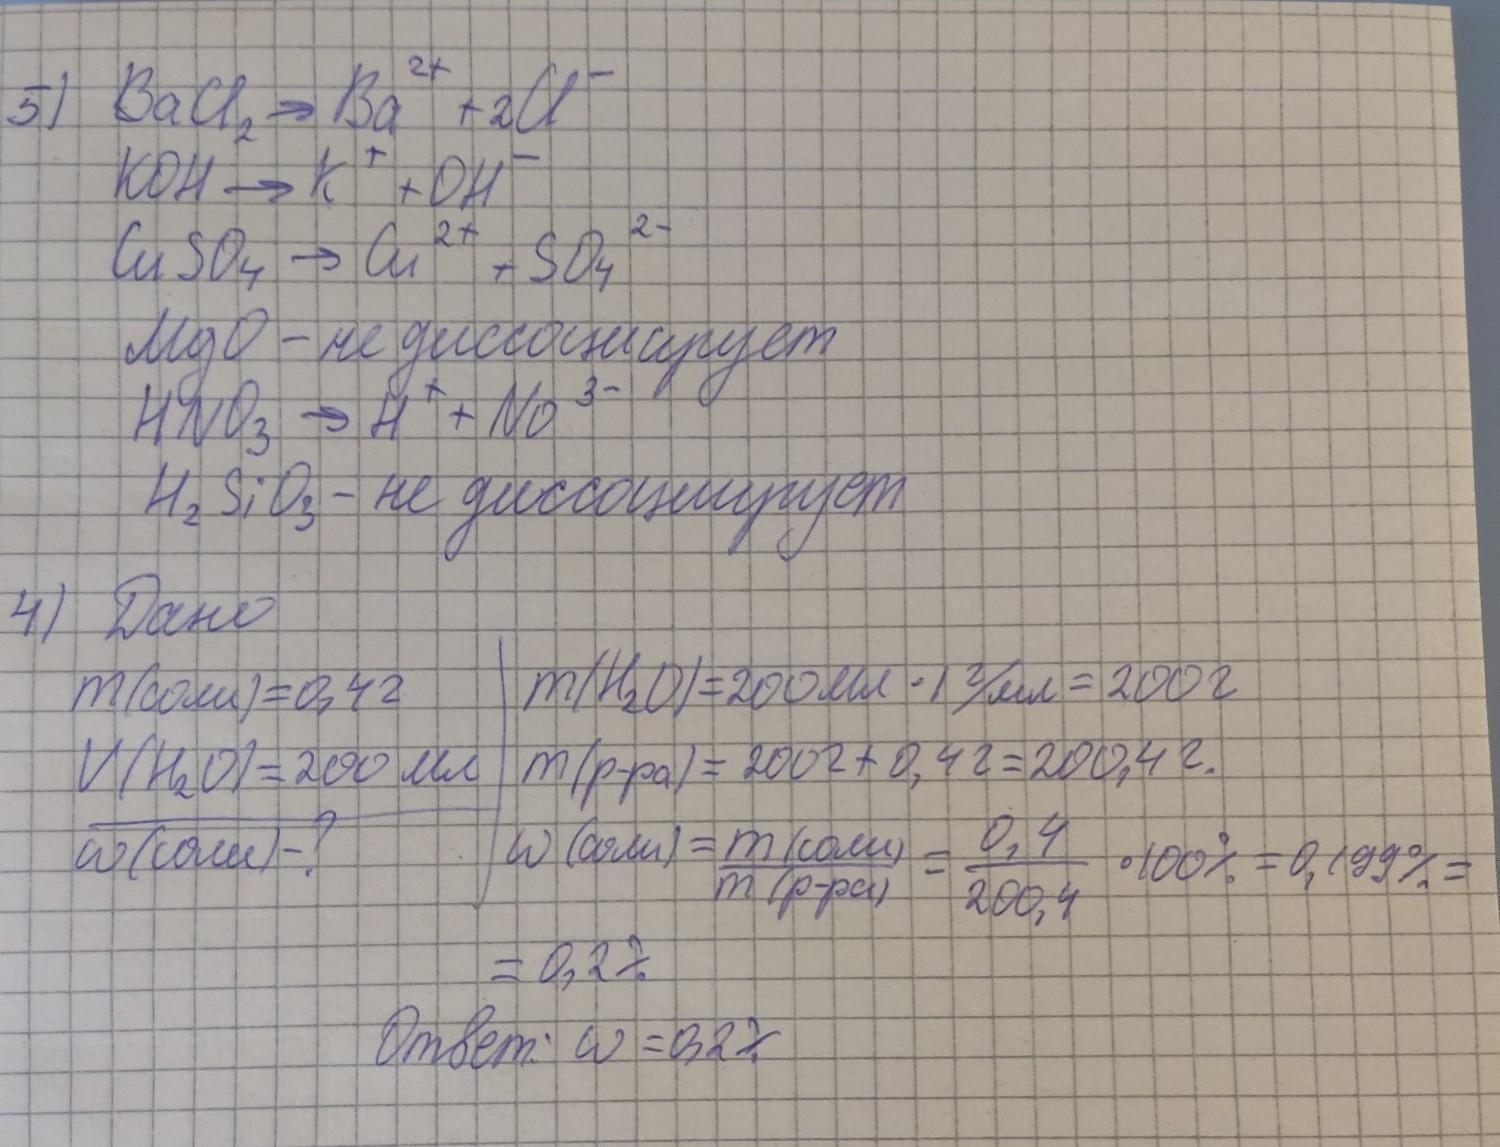 5) BaCl₂ → Ba²⁺ + 2Cl⁻
KOH → K⁺ + OH⁻
CuSO₄ → Cu²⁺ + SO₄²⁻
MgO – не диссоциирует
HNO₃ → H⁺ + No³⁻
H₂SiO₃ – не диссоциирует
4) Дано
m(соли) = 0,4г
V(H₂O) = 200 мл
w(соли) – ?
m(H₂O) = 200мл · 1 г/мл = 200г
m(р-ра) = 200г + 0,4г = 200,4г.
w(соли) = m(соли)/m(р-ра) = 0,4/200,4 · 100% = 0,199% =
= 0,2%
Ответ: w = 0,2%